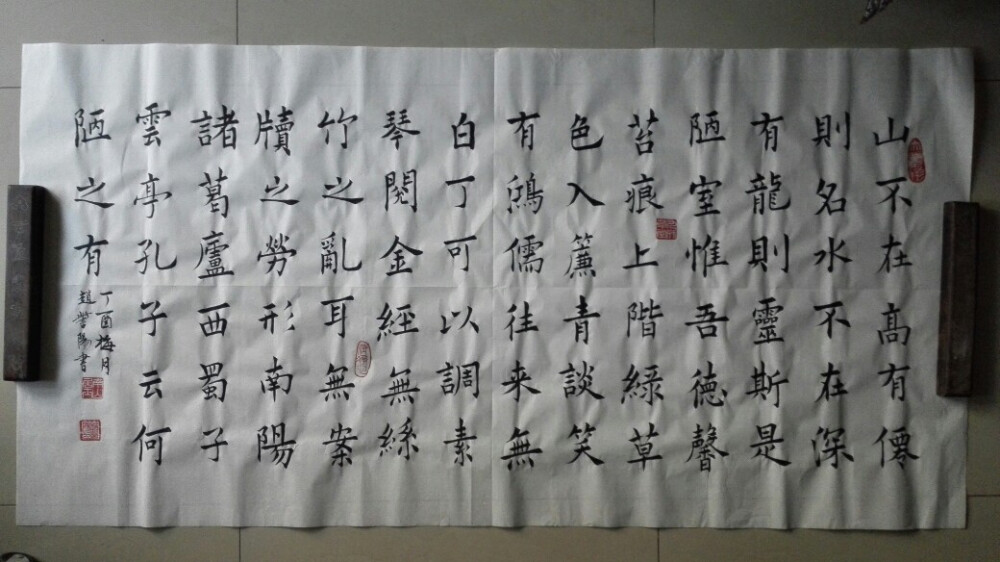 山不在高有僊
則名水不在深
有龍則靈斯是
陋室惟吾德馨
苔痕上階綠草
色入簾青談笑
有鴻儒往來無
白丁可以調素
琴閱金經無絲
竹之亂耳無案
牘之勞形南陽
諸葛廬西蜀子
雲亭孔子云何
陋之有
丁酉梅月
趙陽書